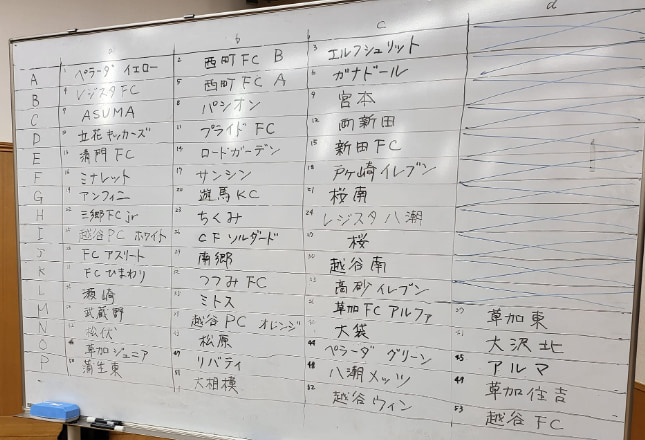 a b c d
A 1 ペラーダ イエロー 2 西町FC B 3 エルフシュリット
B 4 レジスタFC 5 西町FC A 6 ガナドール
C 7 ASUMA 8 パシオン 9 宮本
D 10 立花キッカーズ 11 プライドFC 12 西新田
E 13 清門FC 14 ロードガーデン 15 新田FC
F 16 ミナレット 17 サンシン 18 戸ヶ崎イレブン
G 19 アンフィニ 20 遊馬KC 21 桜南
H 22 三郷FC jr 23 ちくみ 24 レジスタ八潮
I 25 越谷PC ホワイト 26 CF ソルダード 27 桜
J 28 FC アスリート 29 南郷 30 越谷南
K 31 FC ひまわり 32 つつみFC 33 高砂イレブン
L 瀬崎 ミトス 草加FC アルファ 37 草加東
M 武蔵野 越谷PC オレンジ 大袋 41 大沢北
N 松伏 松原 44 ペラーダ グリーン 45 アルマ
O 46 草加ジュニア 47 リバティ 48 八潮メッツ 49 草加住吉
P 50 蒲生東 51 大相模 52 越谷ウィン 53 越谷FC